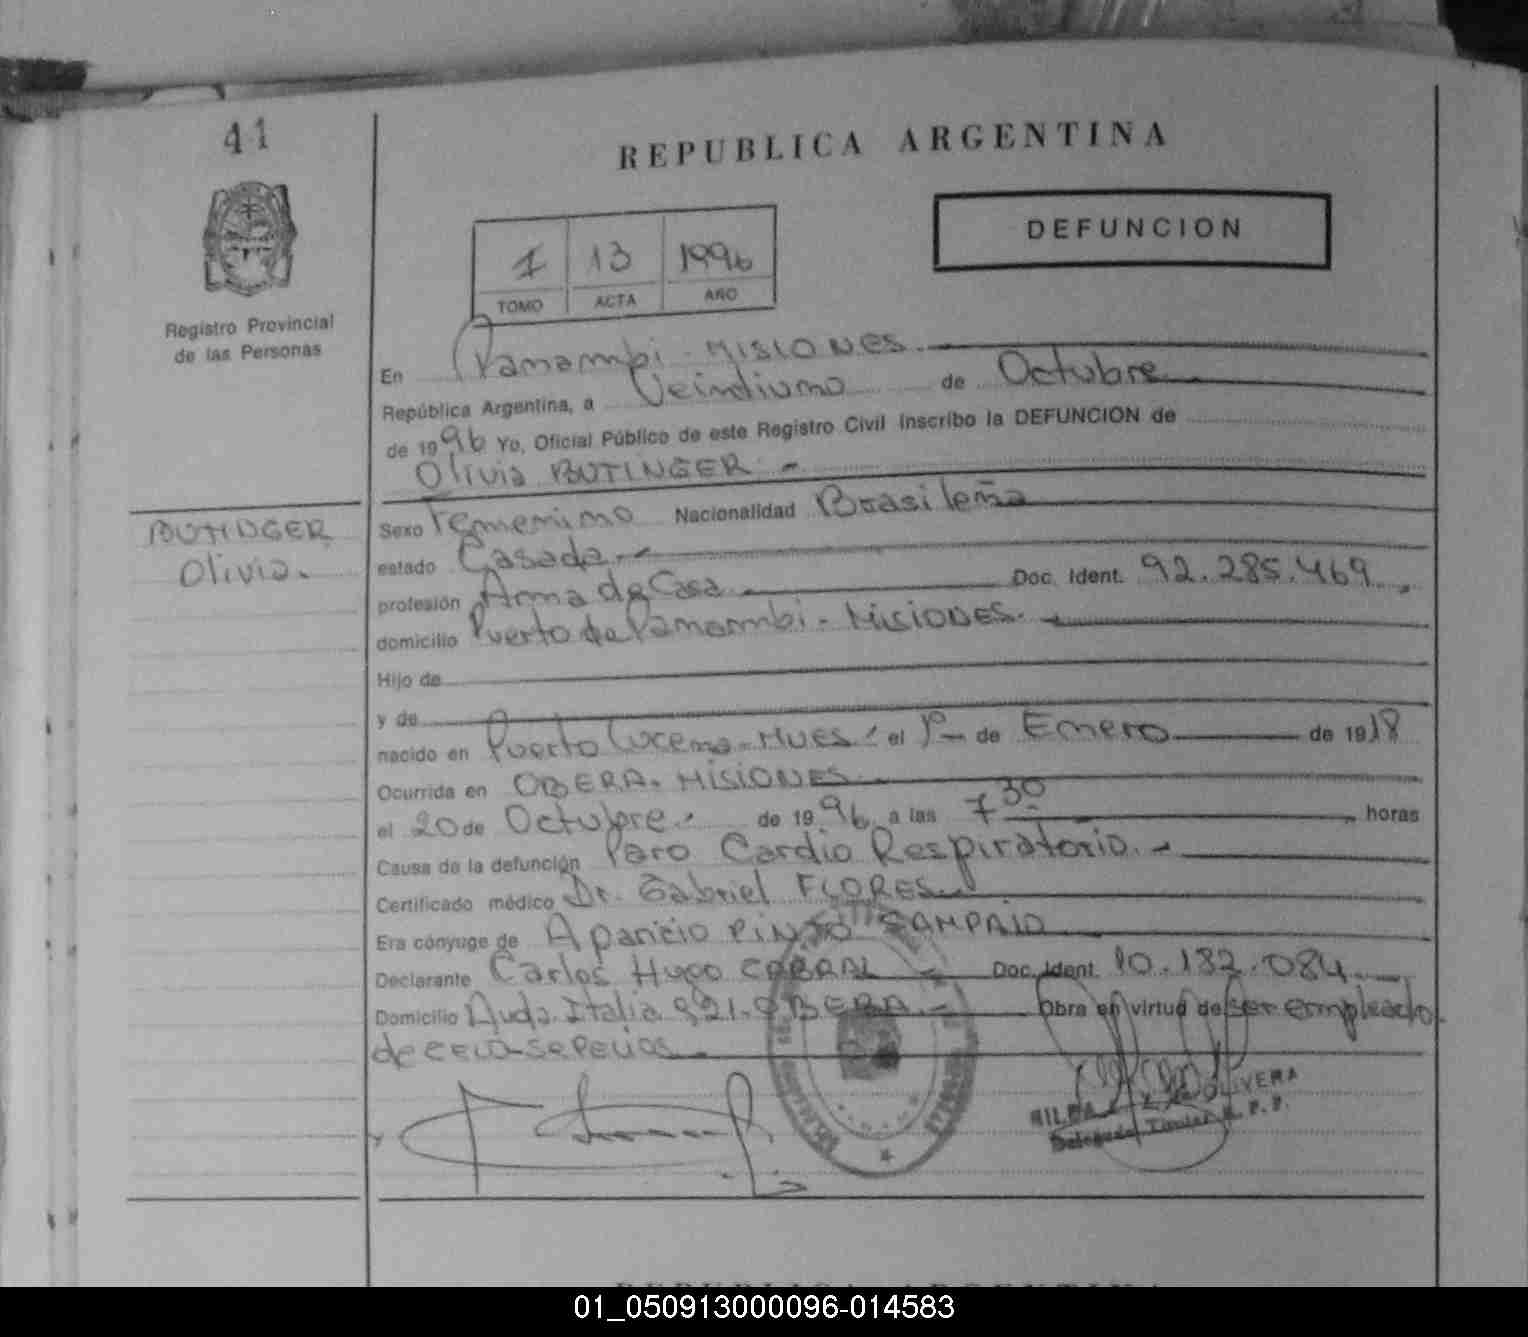 41
REPUBLICA ARGENTINA
DEFUNCION
1 13 1996
TOMO ACTA AÑO
Registro Provincial
de las Personas
En Panambi - MISIONES.
República Argentina, a Veintiuno de Octubre
de 1996 Yo, Oficial Público de este Registro Civil inscribo la DEFUNCION de
Olivia BUTINGER -
BUTINGER
Olivia.
Sexo Femenino Nacionalidad Brasileña
estado Casada.-
profesión Ama de Casa Doc. Ident. 92.285.469
domicilio Puerto de Panambi - MISIONES.
Hijo de
y de
nacido en Puerto Lucena - el 1º de Enero de 1918
Ocurrida en OBERA - MISIONES
el 20 de Octubre. de 1996 a las 7 30 horas
Causa de la defunción Paro Cardio Respiratorio. -
Certificado médico Dr. Gabriel FLORES
Era cónyuge de Aparicio PINTO SAMPAIO
Declarante Carlos Hugo CABRAL Doc. Ident. 10.132.084
Domicilio Avda. Italia 921. OBERA.- Obra en virtud de ser empleado
de sepelios
OLIVERA
Delegada Titular R. P. P.
REPUBLICA ARGENTINA
01_050913000096-014583